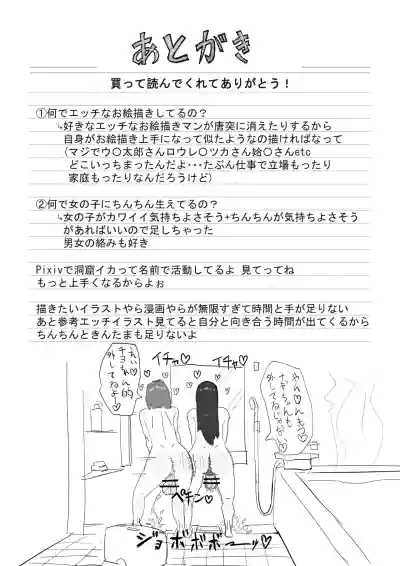 あとがき
買って読んでくれてありがとう！
①何でエッチなお絵描きしてるの？
↳好きなエッチなお絵描きマンが唐突に消えたりするから
自身がお絵描き上手になって似たようなの描ければなって
(マジでウ〇太郎さんロウレ〇ツカさん姶〇さんetc
どこいっちまったんだよ･･･たぶん仕事で立場もったり
家庭もったりなんだろうけど)
②何で女の子にちんちん生えてるの？
↳女の子がカワイイ気持ちよさそう+ちんちんが気持ちよさそう
があればいいので足しちゃった
男女の絡みも好き
Pixivで洞窟イカって名前で活動してるよ 見てってね
もっと上手くなるからよぉ
描きたいイラストやら漫画やらが無限すぎて時間と手が足りない
あと参考エッチイラスト見てると自分と向き合う時間が出てくるから
ちんちんときんたまも足りないよ
イチャ♡
イチャ♡
ペチン♡
ジョボボボーーッ♡